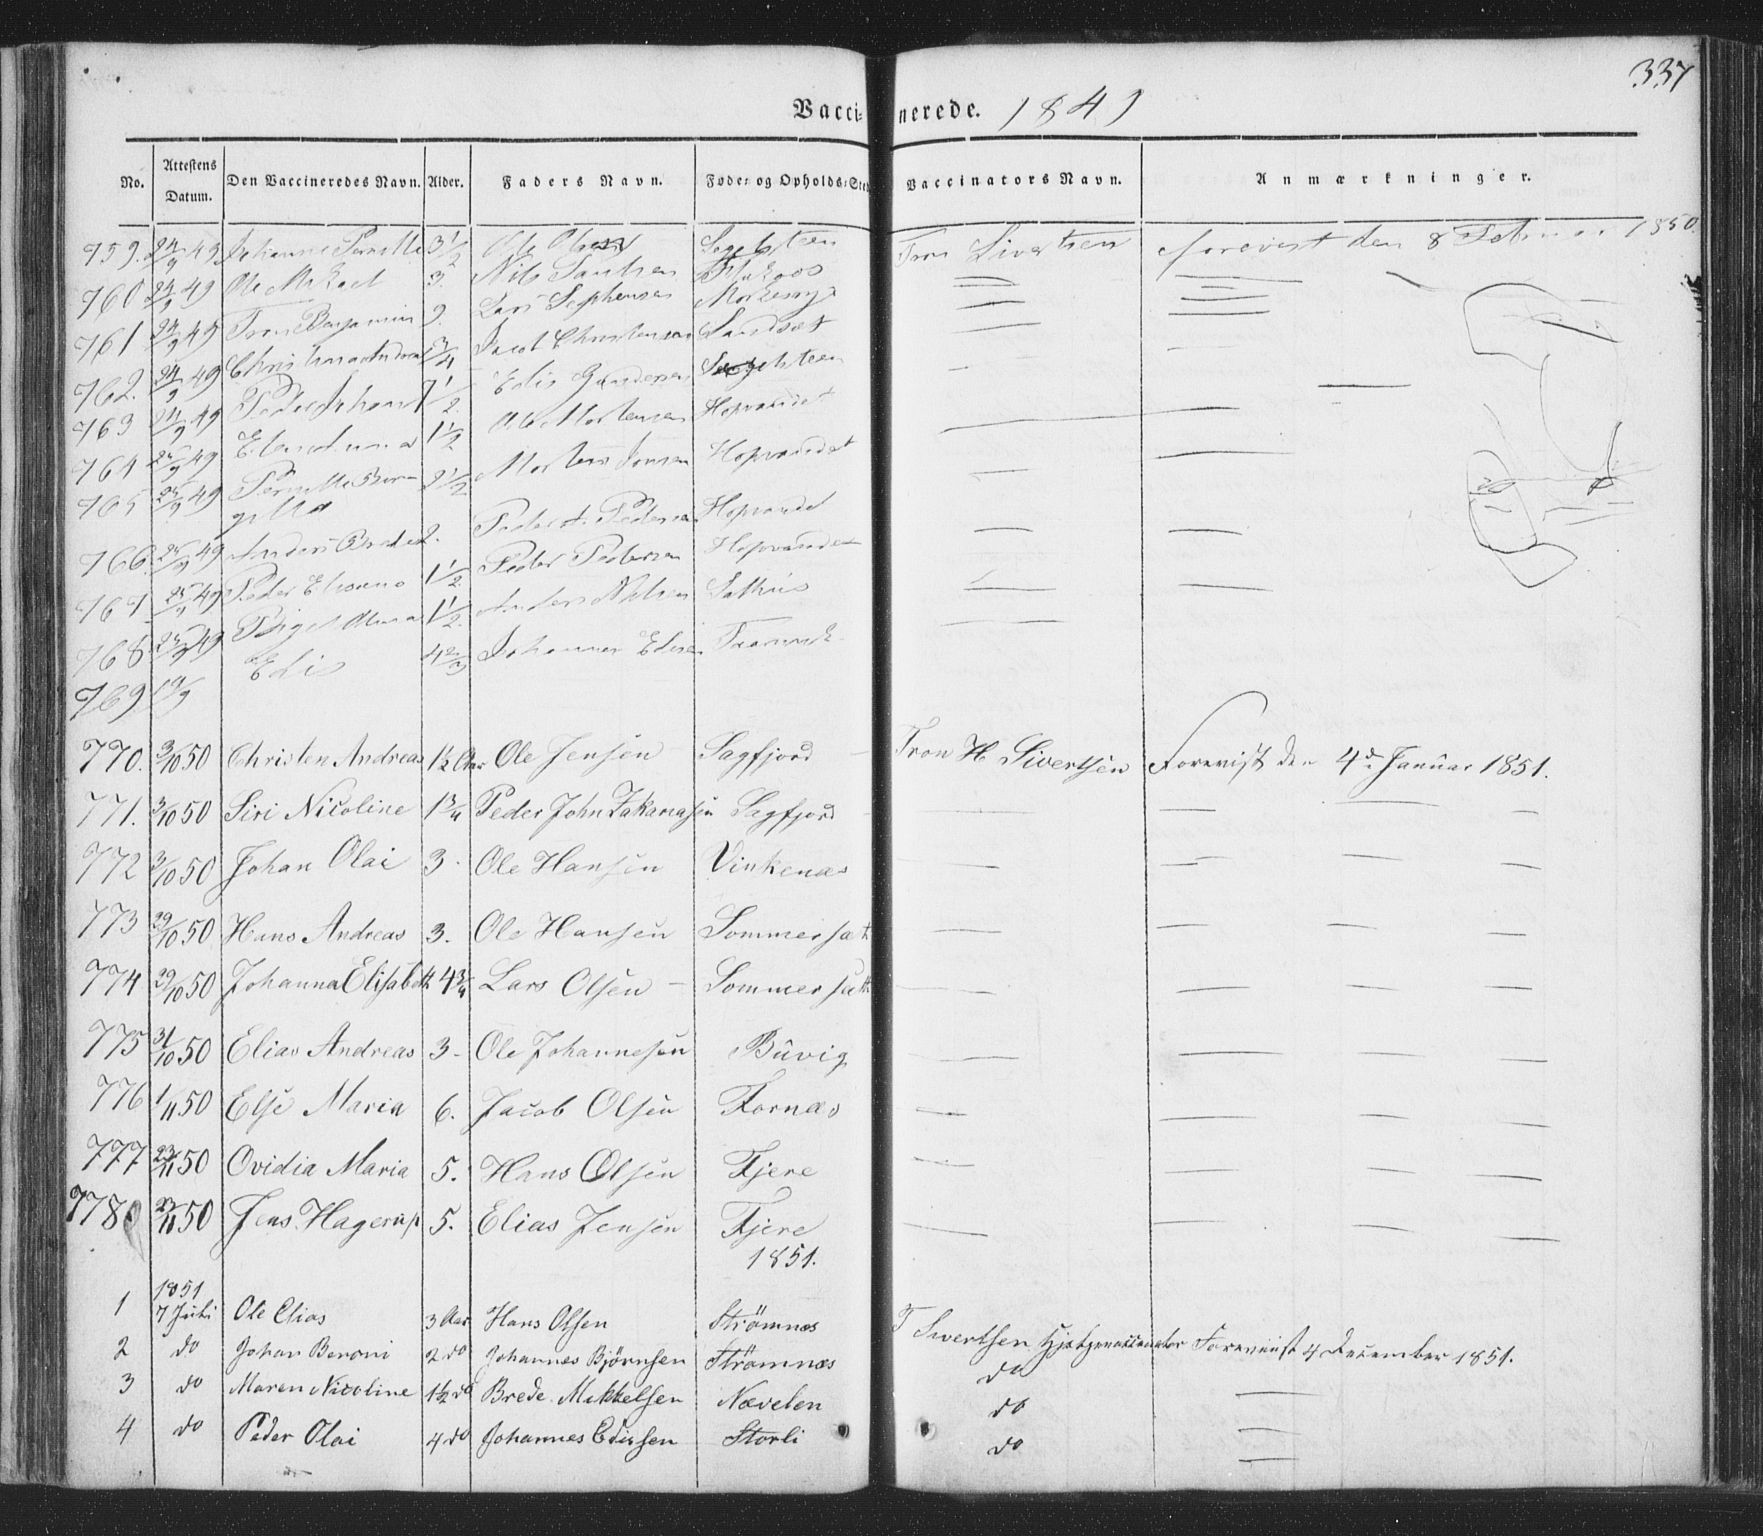 337
Vaccinerede. 1849
No. Attestens Datum. Den Vaccineredes Navn. Alder. Faders Navn. Føde- og Opholds-Sted Vaccinators Navn. Anmærkninger.
759. 24/9 49 Johanne Pernille 3 1/2 Ole Olsen Sagelsteen Tron Sivertsen forevist den 8 Februar 1850.
760 24/9 49 Ole 3. Nils
761 24/9 49 Tron Benjamin 9. Lars
762. 24/9 49 Jacob Christensen Sandsæt
763 24/9 49 Peder Johan 1/2 Edis Gundersen Sagelsteen
764 49 1 1/2 Ole Mortensen Hopvandet
765 49 Pernille Beren 2 1/2 Morten Jonsen Hopvandet
gitta
766. 49 Anders Brede 2. Peder Pedersen Hopvandet
767. 49 Peder 1 1/2 Peder Pedersen Hopvandet
768. 49 Anna 1 1/2. Anders Nilsen
769 19/9 Edis 4 2/3 Johannes Edisen
770. 3/10 50 Christen Andreas 1 1/2 Aar Ole Jensen Sagfjord Tron H Sivertsen Forevist den 4d. Januar 1851.
771. 3/10 50 Siri Nicoline 1 3/4 Peder John Zakariasen Sagfjord — — — —
772 3/10 50 Johan Olai 3 Ole Hansen Vinkenæs — — — —
773 29/10 50 Hans Andreas 3. Ole Hansen Sommersæt — — — —
774 29/10 50 Johanna Elisabeth 4 3/4 Lars Olsen — Sommersæth — — — —
775 31/10 50 Elias Andreas 3 - Ole Johannesen Buvig — — — —
776 1/11 50 Else Maria 6. Jacob Olsen Fornæs — — — —
777 23/11 50 Ovidia Maria 5. Hans Olsen Fjere — — — —
778 23/11 50 Jens Hagerup 5. Elias Jensen Fjere — — — —
1851.
1851
1 7 Juli Ole Elias 3 Aar Hans Olsen Strømnæs T Sivertsen Forevist 4 December 1851.
2 do Johan Beroni 2 do Johannes Bjørnsen Strømnæs do
3 do Maren Nicoline 1 1/2 do Brede Mikkelsen Nævelen do —
4 do Peder Olai 4 do Johannes Edissen Storli do —